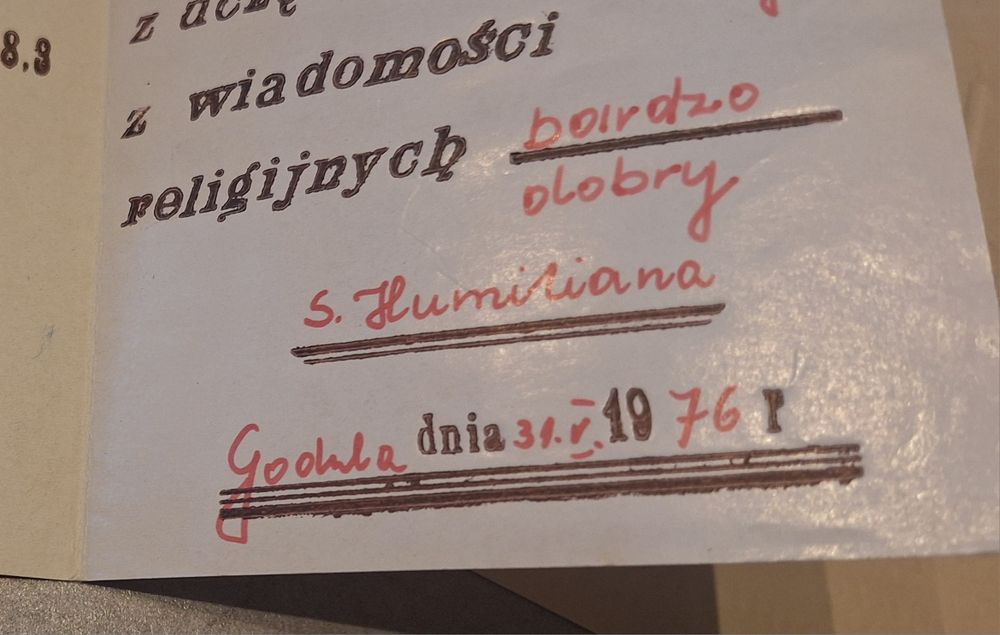 8.3
z
z wiadomości
religijnych bardzo
dobry
S. Humiliana
Godula dnia 31.V.1976 r